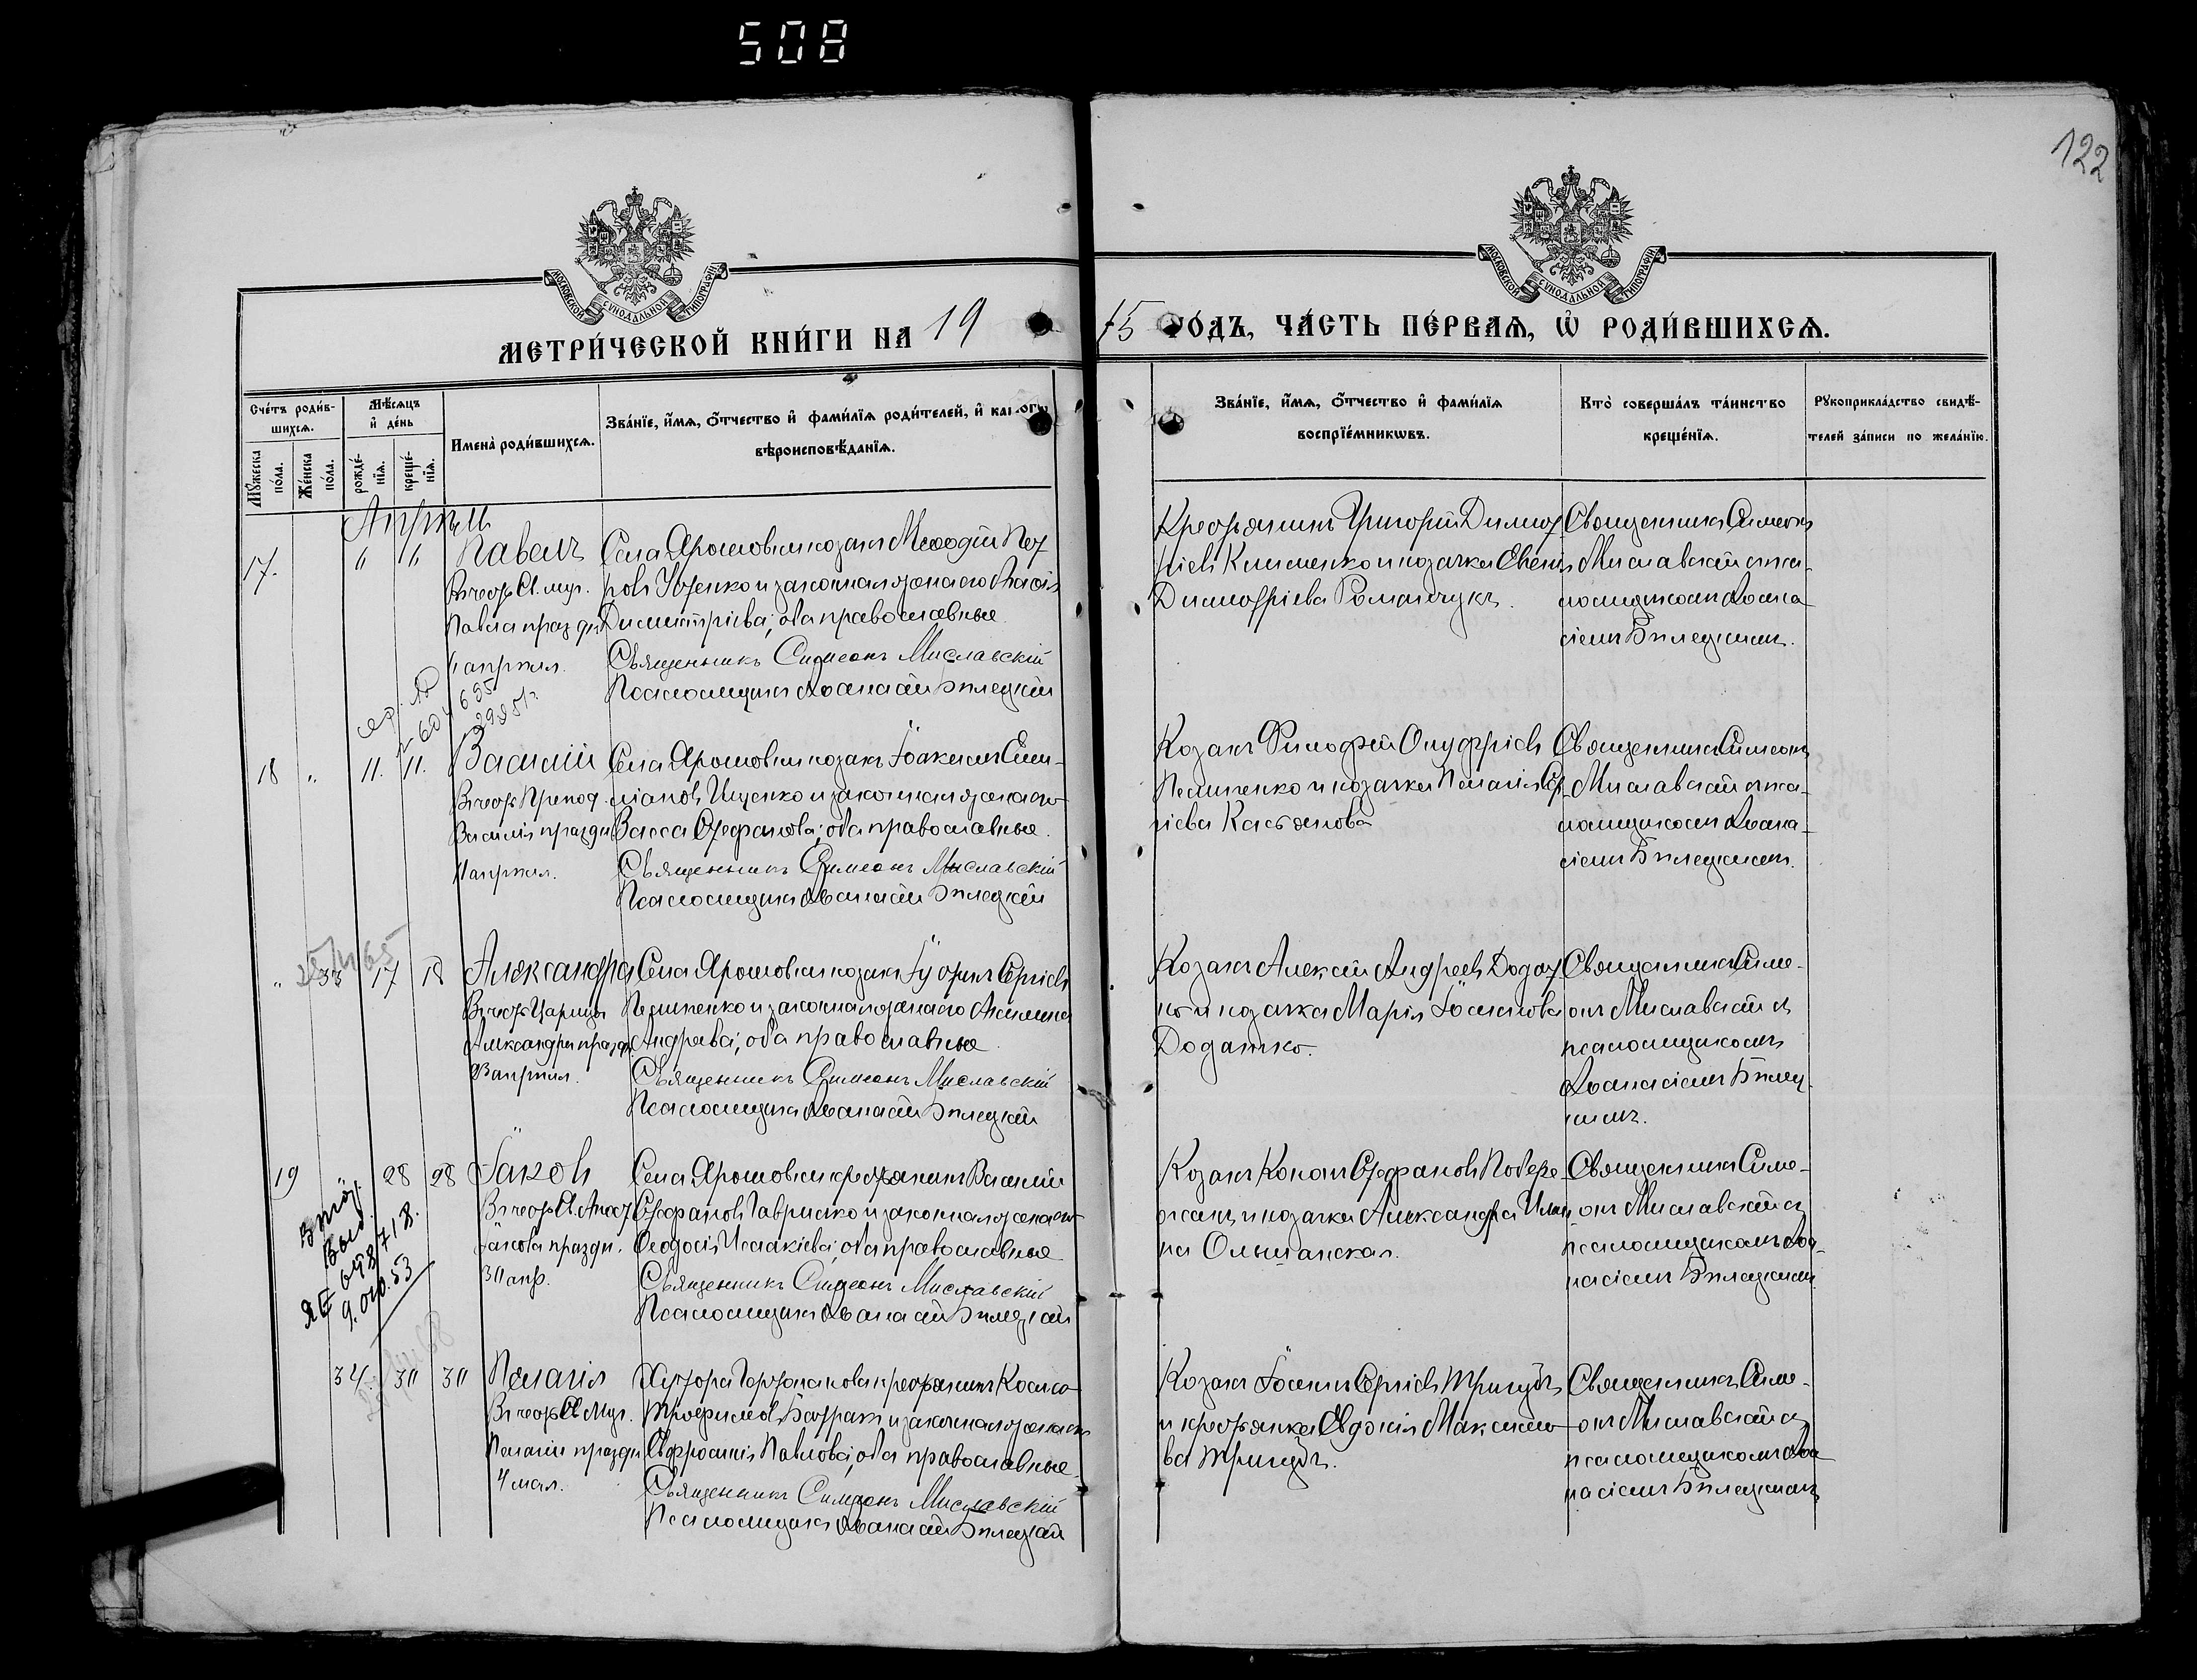 508
122
МОСКОВСКОЙ СУНОДАЛЬНОЙ ТИПОГРАФІИ
МОСКОВСКОЙ СУНОДАЛЬНОЙ ТИПОГРАФІИ
МЕТРИ́ЧЕСКОЙ КНИ́ГИ НА 19
15 ГО́ДЪ, ЧА́СТЬ ПЕ́РВАѦ, Ѡ҆ РОДИ́ВШИХСѦ.
Сче́тъ роди́в-
шихсѧ.
Мꙋ́жеска по́ла.
Же́нска по́ла.
Мѣ́сѧцъ
и҆ де́нь
рожде́-
нїѧ.
креще́-
нїѧ.
Имена̀ роди́вшихсѧ.
Зва́нїе, и҆́мѧ, ѻ҆́тчество и҆ фами́лїѧ роди́телей, и҆ како́гѡ
вѣроисповѣ́данїѧ.
Зва́нїе, и҆́мѧ, ѻ҆́тчество и҆ фами́лїѧ
воспрїе́мникѡвъ.
Кто̀ соверша́лъ та́инство
креще́нїѧ.
Рꙋкоприкла́дство свидѣ́-
телей за́писи по жела́нїю.
Апрѣль
17. " " Павелъ
Въ честь Св. муч.
Павла праздн.
апрѣля.
Села Ярошовки козакъ Меѳодій Пет
ровъ и законная жена его
Димитріева; оба православные
Священникъ Симеонъ Миславскій
Псаломщикъ Аѳанасій Бѣлецкій
Крестьянинъ Григорій Димит
ріевъ Клименко и козачка
Димитріева Романчукъ.
Священникъ Симеонъ
Миславскій съ пса-
ломщикомъ Аѳана
сіемъ Бѣлецкимъ.
18 " 11. 11. Василій
Въ честь Препод.
Василія праздн.
апрѣля.
Села Ярошовки козакъ Іоакимъ Еми-
ліановъ Ищенко и законная жена его
Васса Стефанова; оба православные.
Священникъ Симеонъ Миславскій
Псаломщикъ Аѳанасій Бѣлецкій
Козакъ Филофей Онуфріевъ
Пелипенко и козачка Пелагія Сер
гіева Касьянова
Священникъ Симеонъ
Миславскій съ пса-
ломщикомъ Аѳана-
сіемъ Бѣлецкимъ.
" 33 17 18 Александра
Въ честь Царицы
Александры праздн.
23 апрѣля.
Села Ярошовки козакъ Сергіевъ
Пелипенко и законная жена его Акилина
Андреева; оба православные
Священникъ Симеонъ Миславскій
Псаломщикъ Аѳанасій Бѣлецкій
Козакъ Алексій Андреевъ Додат
ко и козачка Марія Іосифова
Додатко.
Священникъ Симе-
онъ Миславскій съ
псаломщикомъ
Аѳанасіемъ Бѣлец
кимъ.
19 28 28 Іаковъ
Въ честь Св. Апост
Іакова праздн.
30 апр.
Села Ярошовки крестьянинъ Василій
Стефановъ Гаврилко и законная жена его
Ѳеодосія Исаакіева; оба православные
Священникъ Симеонъ Миславскій
Псаломщикъ Аѳанасій Бѣлецкій
Козакъ Кононъ Стефановъ Побере
жецъ и козачка Александра
на Ольшанская.
Священникъ Симе-
онъ Миславскій съ
псаломщикомъ Аѳа-
насіемъ Бѣлецкимъ
34. 30 30 Пелагія
Въ честь Св Муч.
Пелагіи праздн
4 мая.
Хутора крестьянинъ Косма
Трофимовъ и законная жена его
Евфросинія Павлова; оба православные.
Священникъ Симеонъ Миславскій
Псаломщикъ Аѳанасій Бѣлецкій
Козакъ Іосифъ Сергіевъ Тригубъ
и крестьянка Евдокія Максимо
ва Тригубъ.
Священникъ Симе-
онъ Миславскій съ
псаломщикомъ Аѳа
насіемъ Бѣлецкимъ